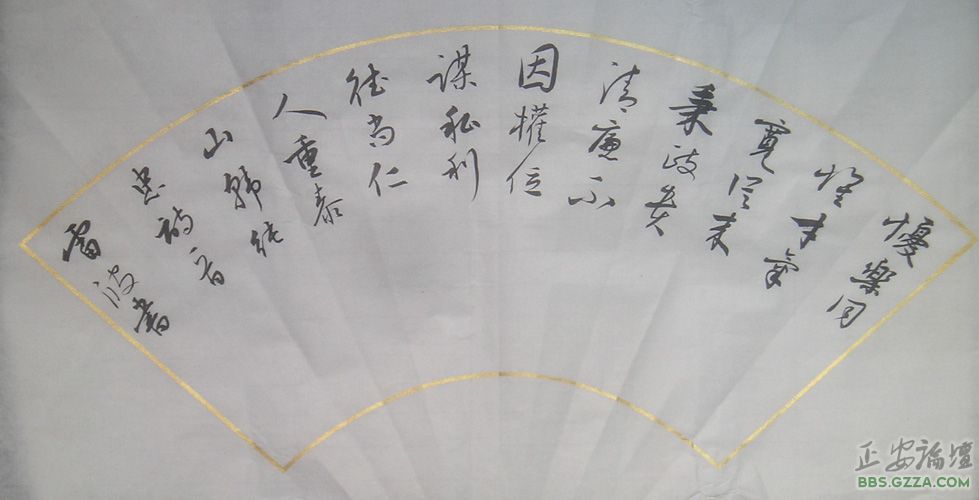 懮樂同
懷才氣
寬從來
秉政貴
清廉不
因權位
謀私利
德尚仁
人重泰
山韓
忠詩
雷波書
正安論壇
BBS.GZZA.COM